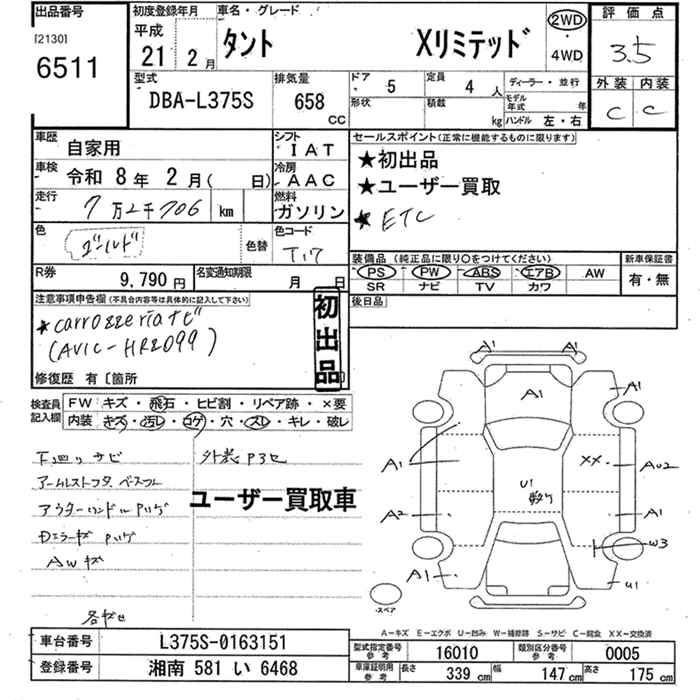 出品番号
[2130]
6511
初度登録年月
平成
21 2月
車名・グレード
タント Xリミテッド
2WD
・
4WD
評価点
3.5
外装 内装
C C
型式
DBA-L375S
排気量
658
cc
ドア 5
定員 4 人
形状
積載 kg
ディーラー・並行
モデル年式 年
ハンドル 左・右
車歴 自家用
シフト IAT
車検 令和 8年 2月( 日)
冷房 AAC
走行 7万2千706 km
燃料 ガソリン
色 ゴールド
色替
色コード T17
R券 9,790円
名変通知期限 月 日
セールスポイント(正常に機能するものに限ります)
★初出品
★ユーザー買取
★ETC
装備品(純正品に限り○をつけてください)
PS PW ABS エアB AW
SR ナビ TV カワ
新車保証書
有・無
後日品
注意事項申告欄(不具合内容等は具体的に記入して下さい)
★carrozzeriaナビ
(AVIC-HRZ099)
初出品
修復歴 有〔箇所
検査員記入欄
FW キズ・飛石・ヒビ割・リペア跡・×要
内装 キズ・汚レ・コゲ・穴・スレ・キレ・破レ
下廻りサビ
外装
ユーザー買取車
AWキズ
A1 A1
A1
A1
A1
××
AU2
U1
A2
A1
W3
A1
U1
・スペア
A-キズ E-エクボ U-凹み W-補修跡 S-サビ C-腐食 XX-交換済
車台番号 L375S-0163151
登録番号 湘南 581 い 6468
型式指定番号参考 16010
類別区分番号参考 0005
車庫証明用参考
長さ 339 cm
幅 147 cm
高さ 175 cm